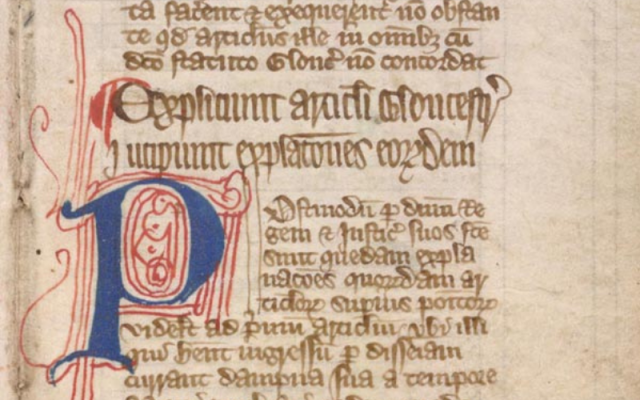 ta facent ⁊ exequerent̃ nõ obstan
te qd articl̃us ille in omĩbꝫ cũ
dc̃o statuto Glouc̃ nõ concordat
Expliciunt articl̃i Gloucestr̃
Incipiunt explac̃ones eorꝝdem
Postmodũ p dñum Re
gem ⁊ Justic̃ suos fc̃e
sunt quedam expla
nac̃ões quorꝝdam ar
ticl̃orꝝ supius poitorꝝ
videlt̃ ad p̃imũ articl̃m vbi illi
qui hent ingressũ p disseiam
currant dampna sua a tempore